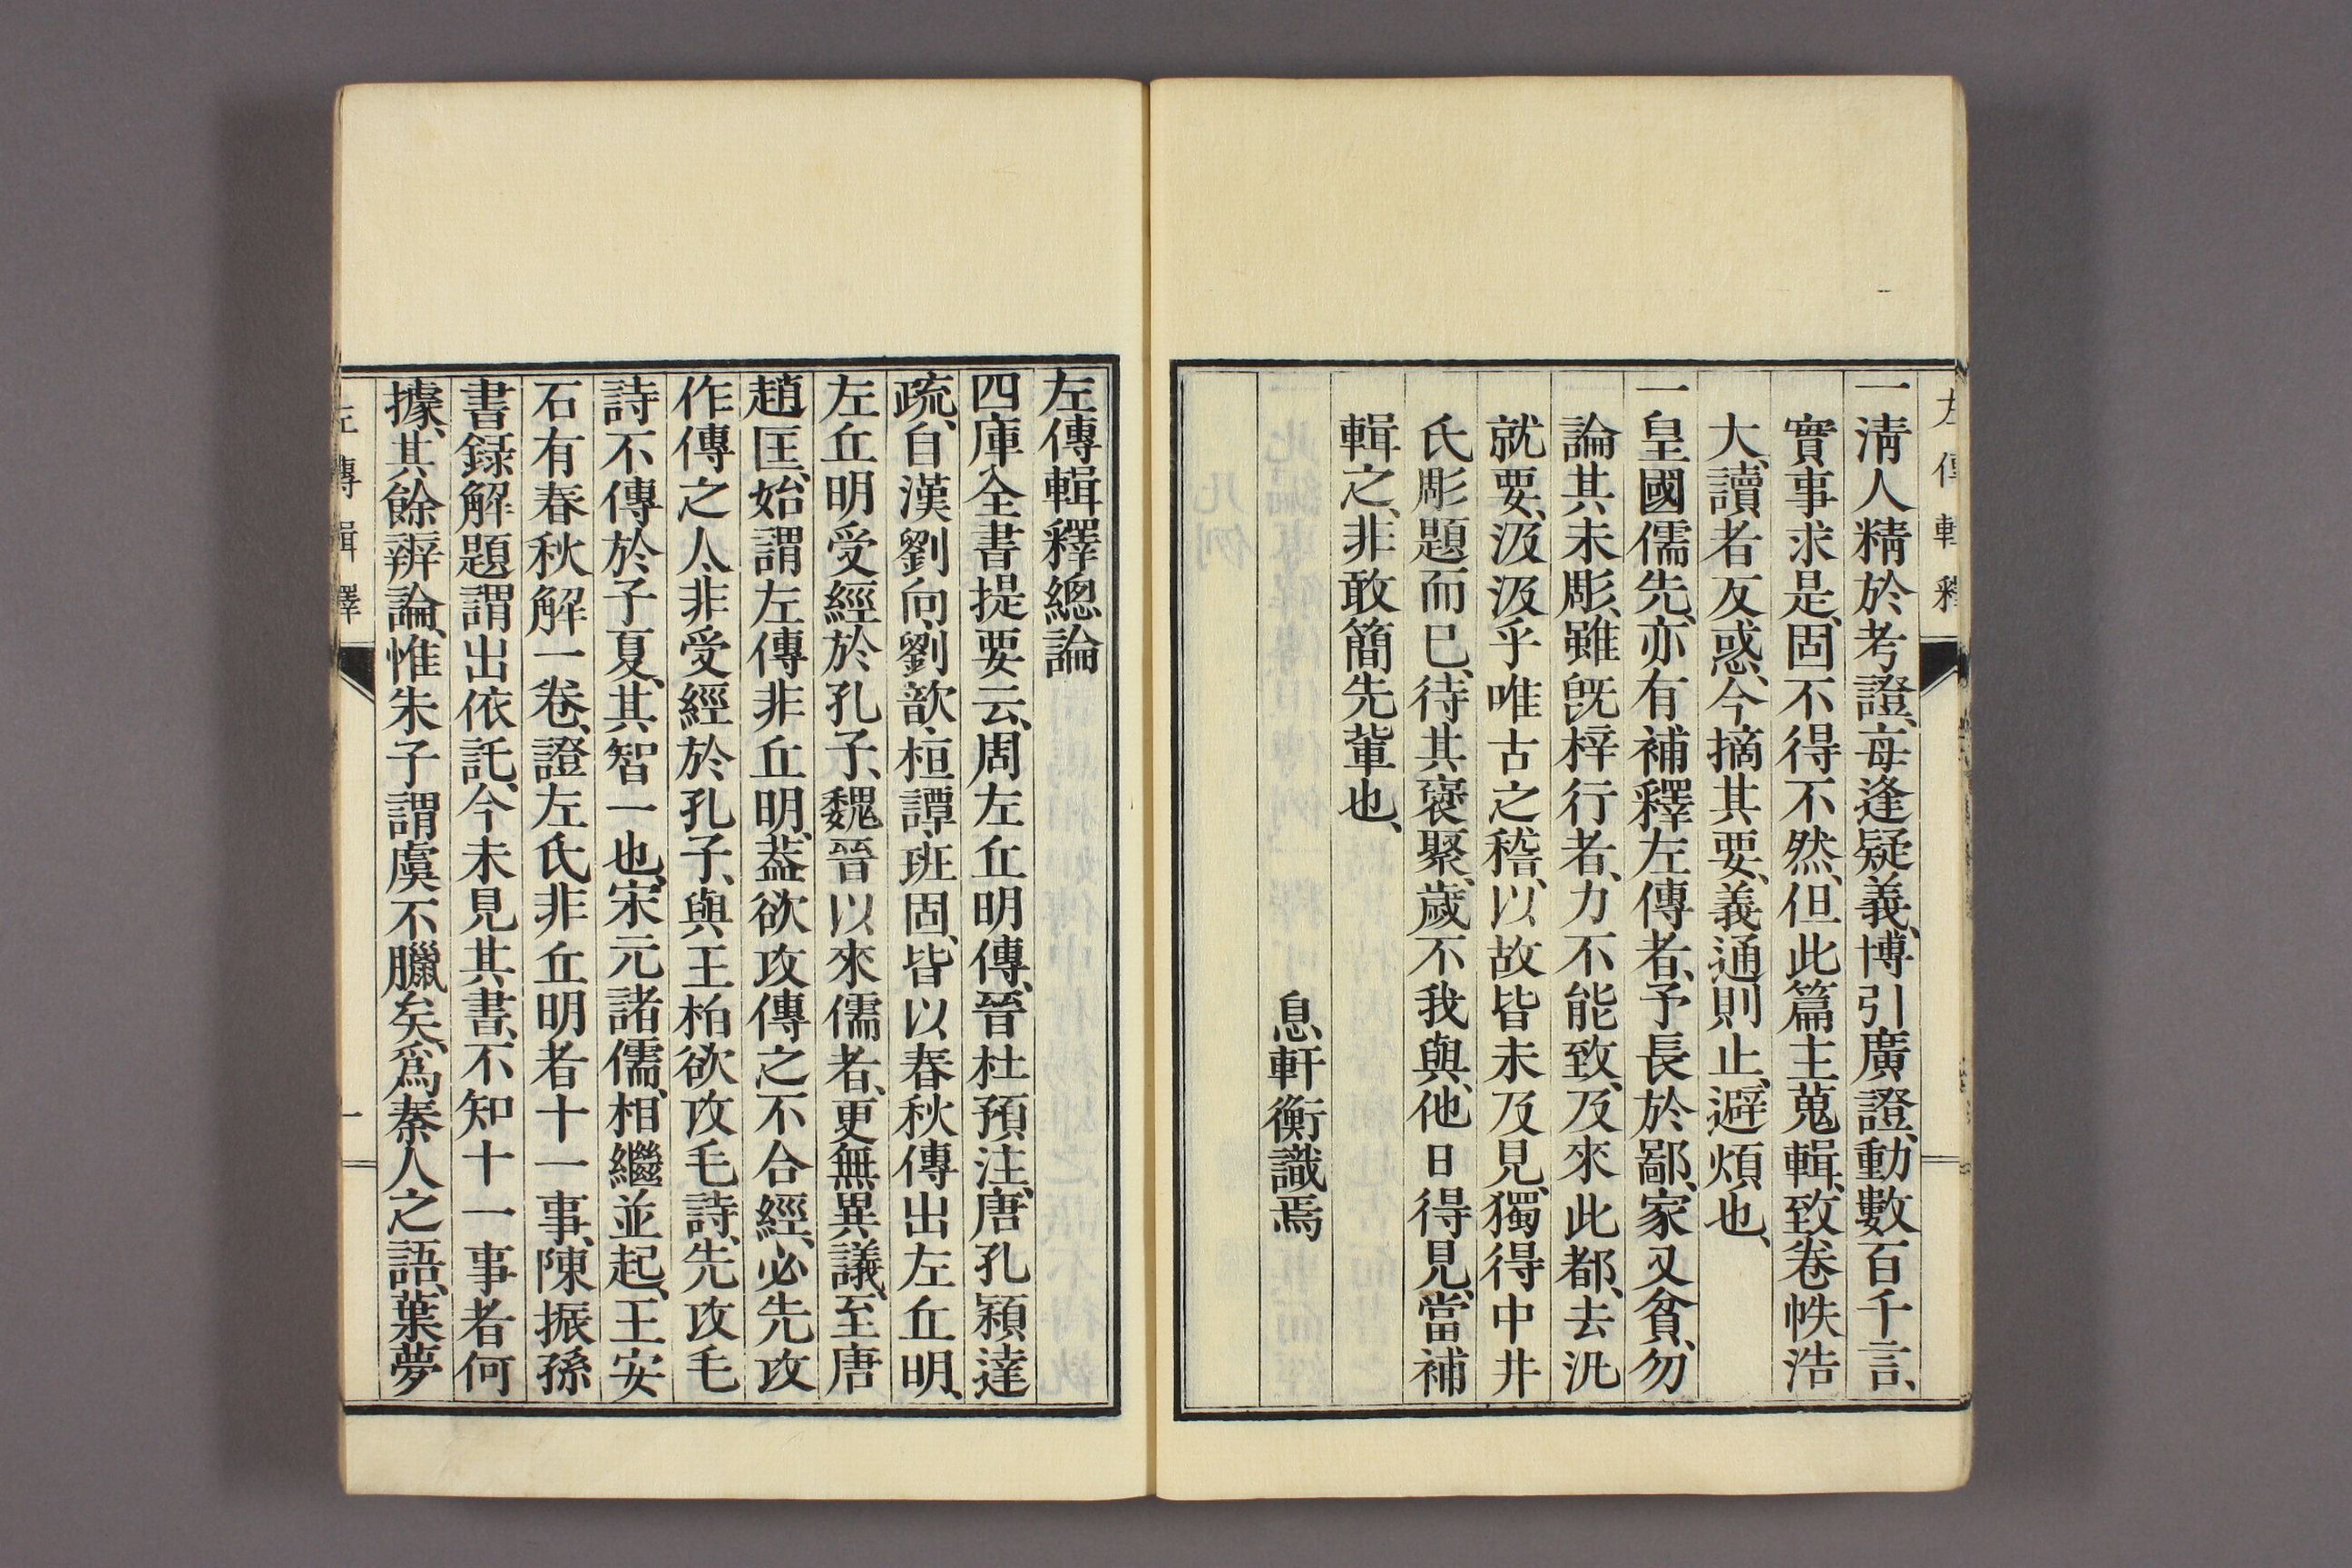 一清人精於考證、每逢疑義、博引廣證、動數百千言、
實事求是、固不得不然、但此篇主蒐輯、致卷帙浩
大、讀者反惑、今摘其要、義通則止、避煩也、
一皇國儒先、亦有補釋左傳者、予長於鄙、家又貧、勿
論其未彫、雖既梓行者、力不能致、及來此都、去汎
就要、汲汲乎唯古之稽、以故皆未及見、獨得中井
氏彫題而已、待其裒聚、歲不我與、他日得見、當補
輯之、非敢簡先輩也、
息軒衡識焉
左傳輯釋
左傳輯釋總論
四庫全書提要云、周左丘明傳、晉杜預注、唐孔穎達
疏、自漢劉向、劉歆、桓譚、班固、皆以春秋傳出左丘明、
左丘明受經於孔子、魏晉以來儒者、更無異議、至唐
趙匡、始謂左傳非丘明、葢欲攻傳之不合經、必先攻
作傳之人、非受經於孔子、與王柏欲攻毛詩、先攻毛
詩不傳於子夏、其智一也、宋元諸儒、相繼並起、王安
石有春秋解一卷、證左氏非丘明者十一事、陳振孫
書録解題謂出依託、今未見其書、不知十一事者何
據、其餘辨論、惟朱子謂虞不臘矣、爲秦人之語、葉夢
左傳輯釋
一